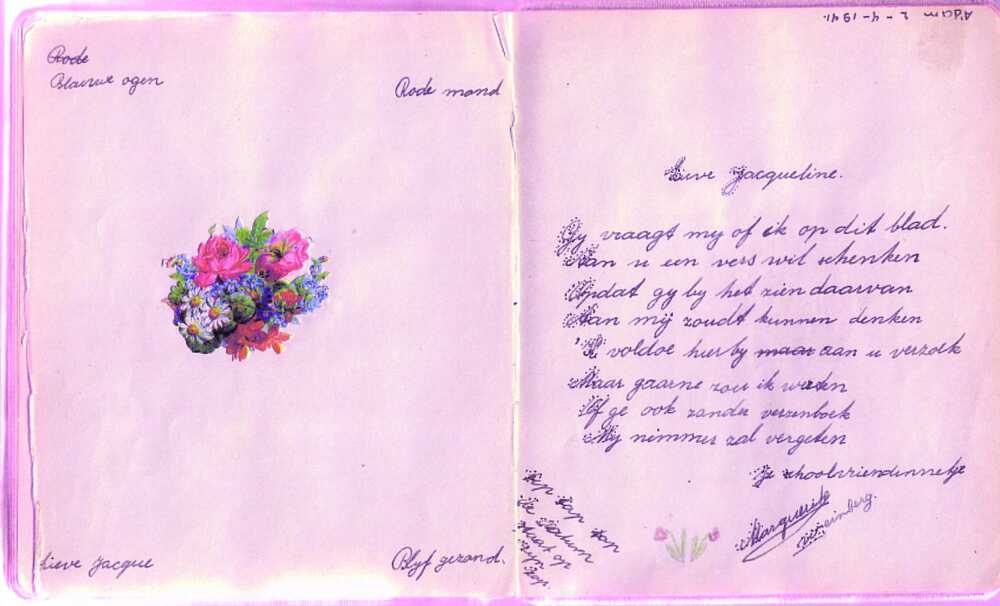 Rode
Blauwe ogen
Rode mond
Lieve Jacque
Blyf gezond.
A'dam 2-4-1941.
Lieve Jacqueline.
Gy vraagt my of ik op dit blad.
Aan u een vers wil schenken
Opdat gy by het zien daarvan
Aan mij zoudt kunnen denken
'K voldoe hierby maar aan u verzoek
Maar gaarne zou ik weten
Of ge ook zonder verzenboek
My nimmer zal vergeten
Je schoolvriendinnetje
Marguerite
Tip Tap Top
De Datum
staat op
zyn
kop.